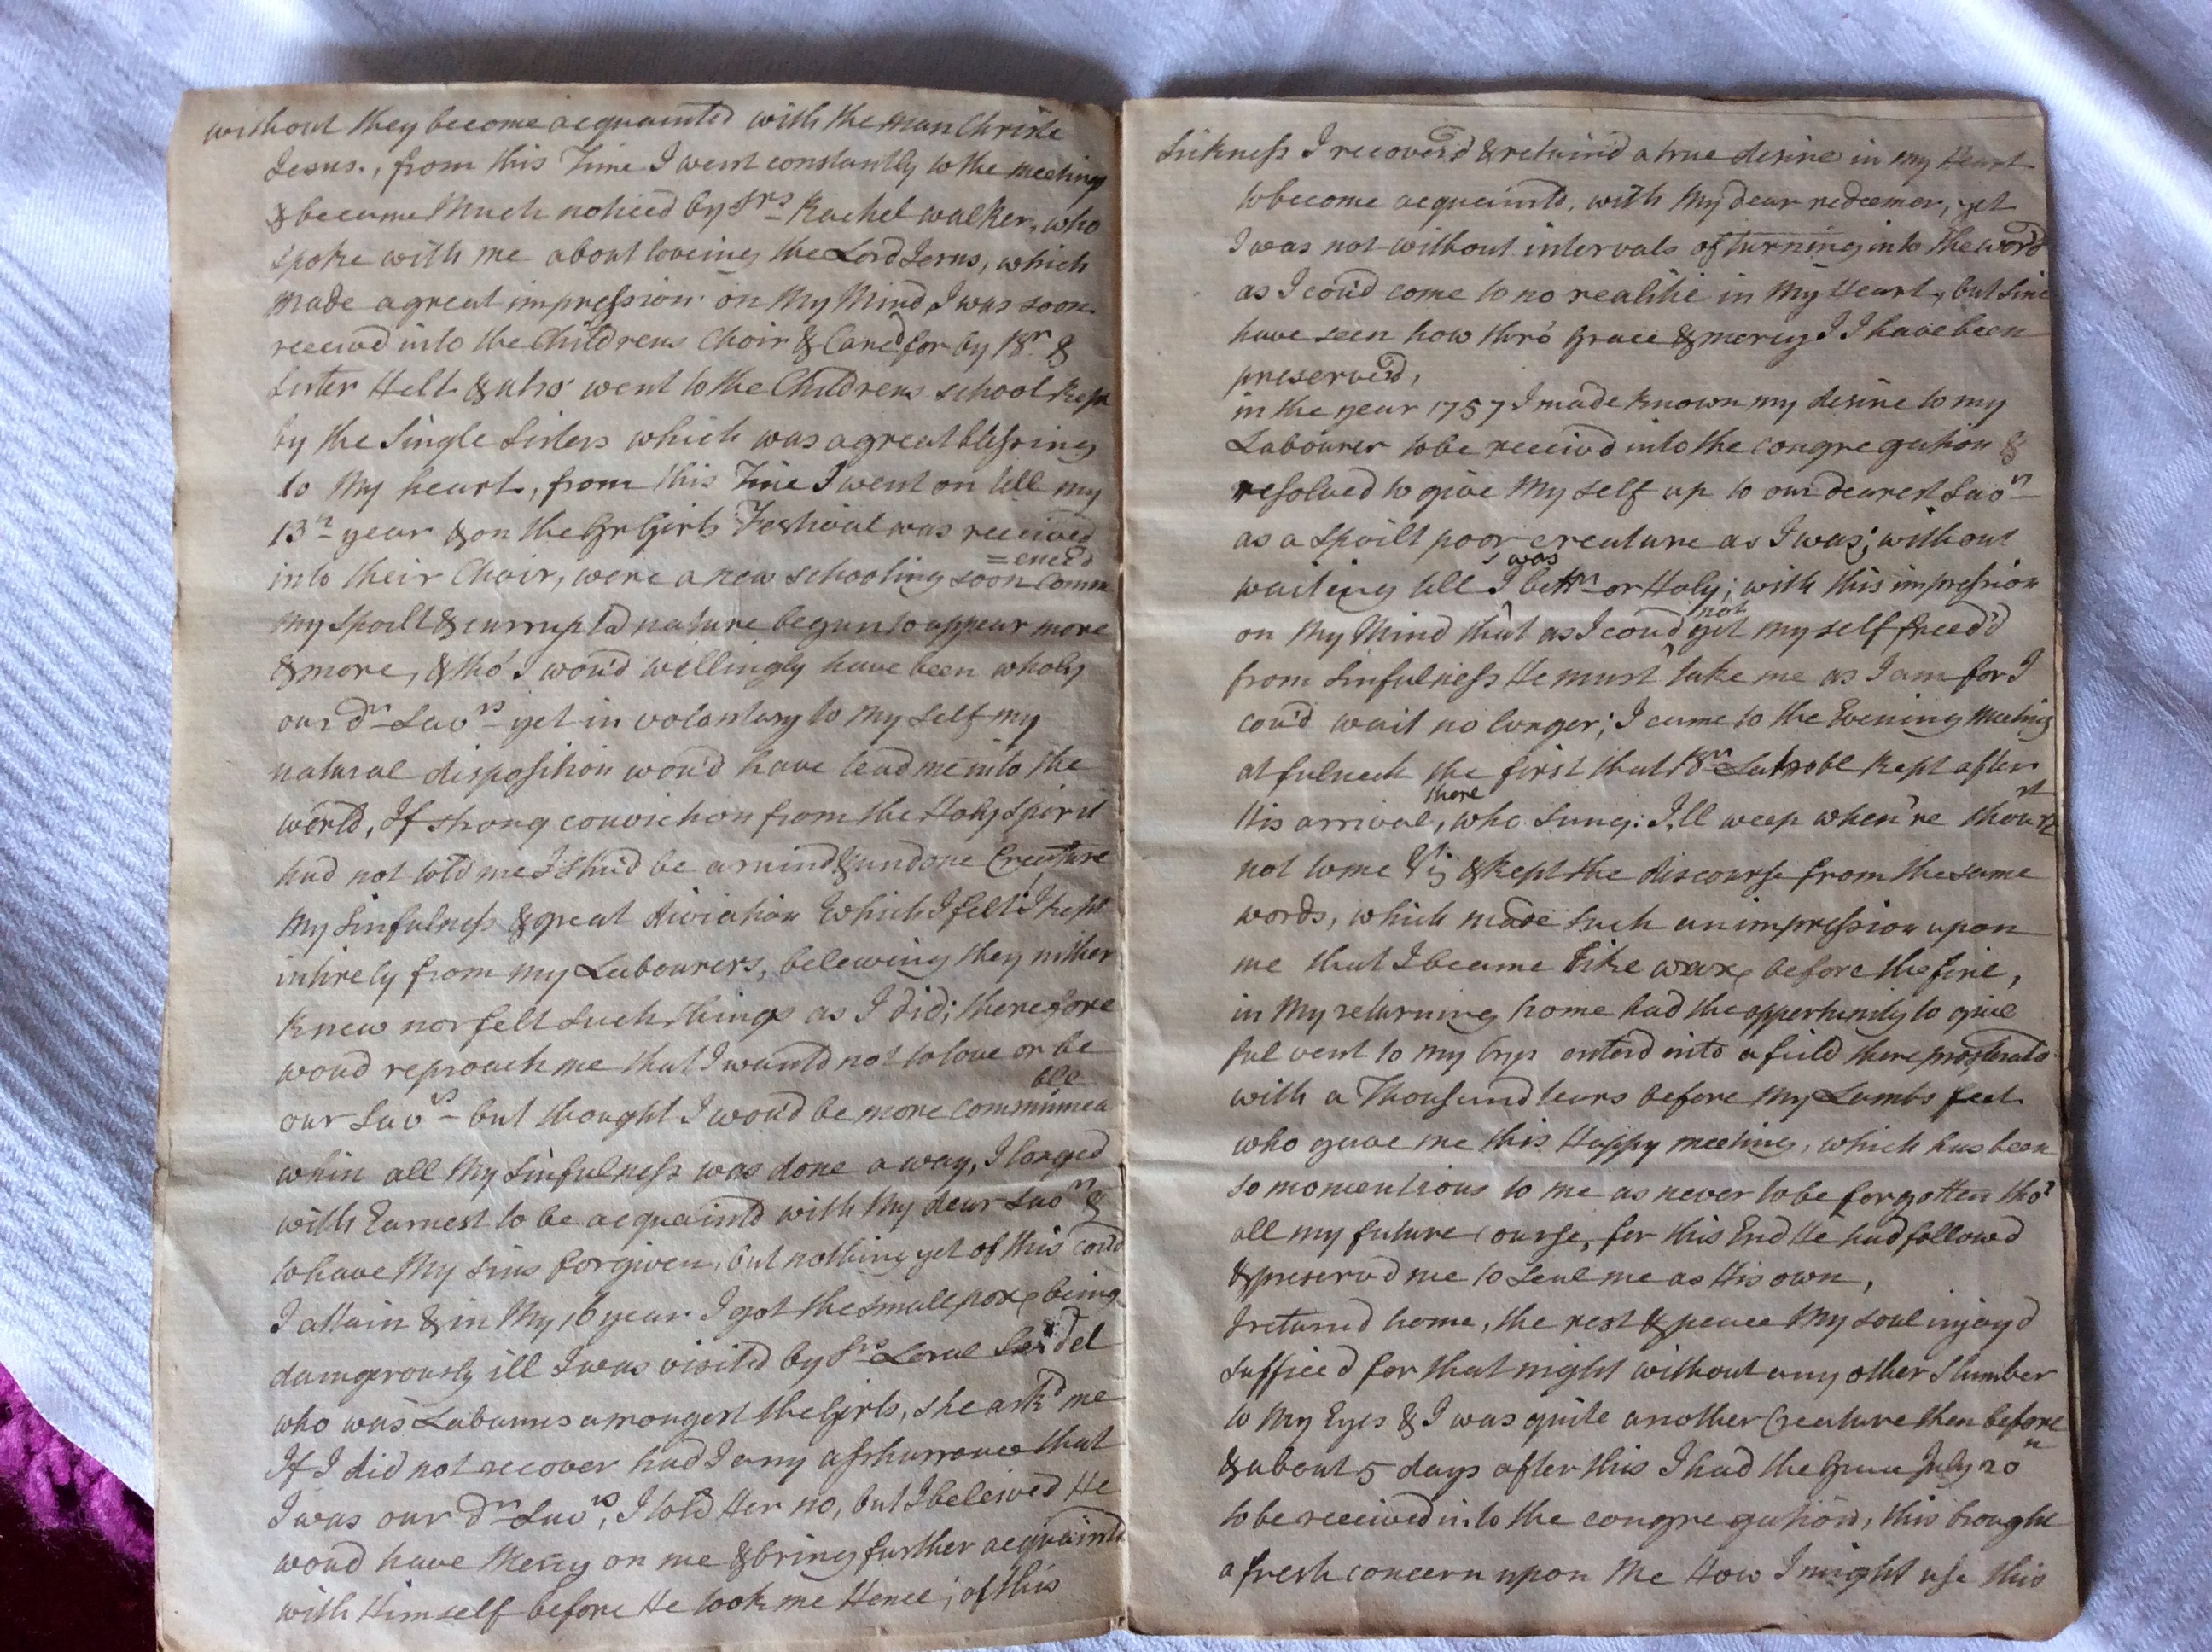 without they become acquaintd with the man Christe
Jesus., from this Time I went constantly to the meeting
& became Much noticed by Srs Rachel walker, who
spoke with me about loveing the Lord Jesus, which
made a great impression on My Mind I was soon
receivd into the Childrens Choir & Cared for by Br &
Sister Helt & also went to the Childrens school kept
by the Single Sisters which was a great blessing
to My heart, from this Time I went on till my
13th year & on the Gr Girls Festival was received
into their Choir, were a new schooling soon Comm
=enced
my Spoilt & currupted nature begun to appear more
& more, & tho' I wou'd willingly have been wholy
our dr Savrs yet in volantary to My self my
natural disposition wou'd have lead me into the
world, If strong conviction from the Holy Spirit
had not told me I shu'd be a ruind & undone Creature
My Sinfulness & great diviation which I felt I kept
intirely from my Labourers, beleiving they nither
knew nor felt such things as I did; therefore
woud reproach me that I wantd not to love or be
our Savrs but thought I wou'd be more communica
ble
whin all My Sinfulness was done away, I longed
with Earnest to be acquaintd with My dear Savr &
to have My Sins forgiven, but nothing yet of this cou'd
I attain & in My 16 year I got the small pox being
dangerously ill I was visited by Srs Seidel
who was Labourus amongest the Girls, she ask'd me
If I did not recover had I any asshurrance that
I was our dr Savrs, I told Her no, but I beleived He
woud have Mercy on me & bring further acquaintd
with Himself before He took me Hence; of this
Sickness I recoverd & retaind a true desire in my Heart
to become acquaintd, with My dear redeemer, yet
I was not without intervals of turning into the word
as I cou'd come to no realitie in My Heart, but Sine
have seen how thro' Grace & mercy I I have been
preserved,
in the year 1757 I made known my desire to my
Labourer to be receivd into the congregation &
resolved to give My self up to our dearest Savr
as a Spoilt poor creature as I was; without
waiting till I was bettr or Holy; with this impression
on My Mind that as I coud not get my self freed'd
from Sinfulness He must take me as I am for I
cou'd wait no longer; I came to the Evening Meeting
at fulneck the first that Br Latrobe kept after
His arrival there, who Sung: I,ll weep when're thou'rt
not to me & kept the discourse from the same
words, which made such an impression upon
me that I became like wax before the fire,
in My returning home had the oppertunity to give
ful vent to my Crys enterd into a field there prosterate
with a Thousand tears before My Lambs feet
who gave me this Happy meeting, which has been
so momentious to me as never to be forgotten tho'
all my future Course, for this End He had followd
& preservd me to Seal me as His own,
I returnd home, the rest & peace My soul injoy'd
sufficed for that night without any other Slumber
to My Eyes & I was quite another Creature then before
& about 5 days after this I had the Grace July 20th
to be received into the congregation, this brought
a fresh concern upon Me How I might use this